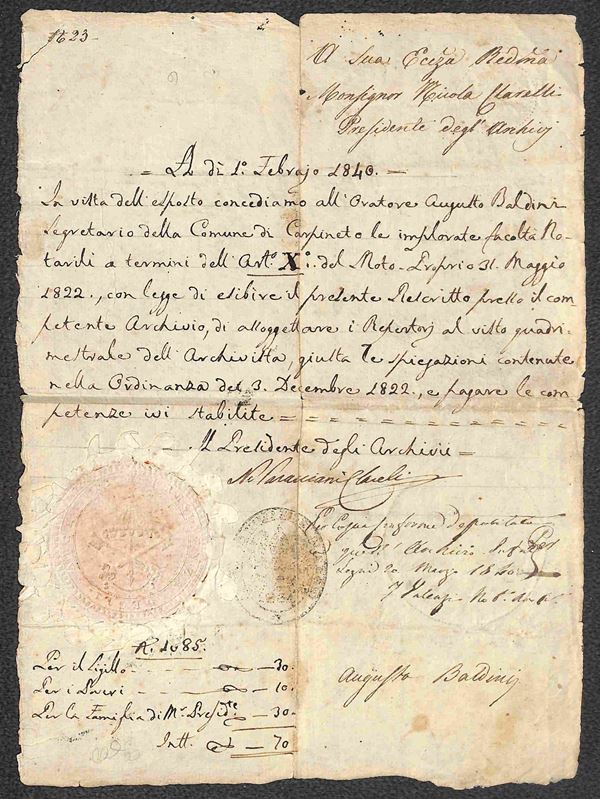 1823
A Sua Eccza Redma
Monsignor Nicola Clarelli
Presidente degl' Archivj
A dì 1°. Febrajo 1840.
In vista dell'esposto concediamo all'Oratore Augusto Baldini
Segretario della Comune di Carpineto le implorate facoltà No-
tarili a termini dell'Arto. X°. del Moto-Proprio 31. Maggio
1822., con legge di esibire il presente Rescritto presso il com-
petente Archivio, di assoggettare i Repertorj al visto quadri-
mestrale dell'Archivista, giusta le spiegazioni contenute
nella Ordinanza dei 3. Decembre 1822., e pagare le com-
petenze ivi stabilite
Il Presidente degli Archivii
N. Paracciani Clarelli
Per Copia conforme depositata
Archivio
Segni 20 Marzo 1840
N. 1085.
Per il Sigillo - - - 30.
Per i Poveri - - - 10.
Per la Famiglia di Mr. Preside. - 30.
Intt. - 70
Augusto Baldinj